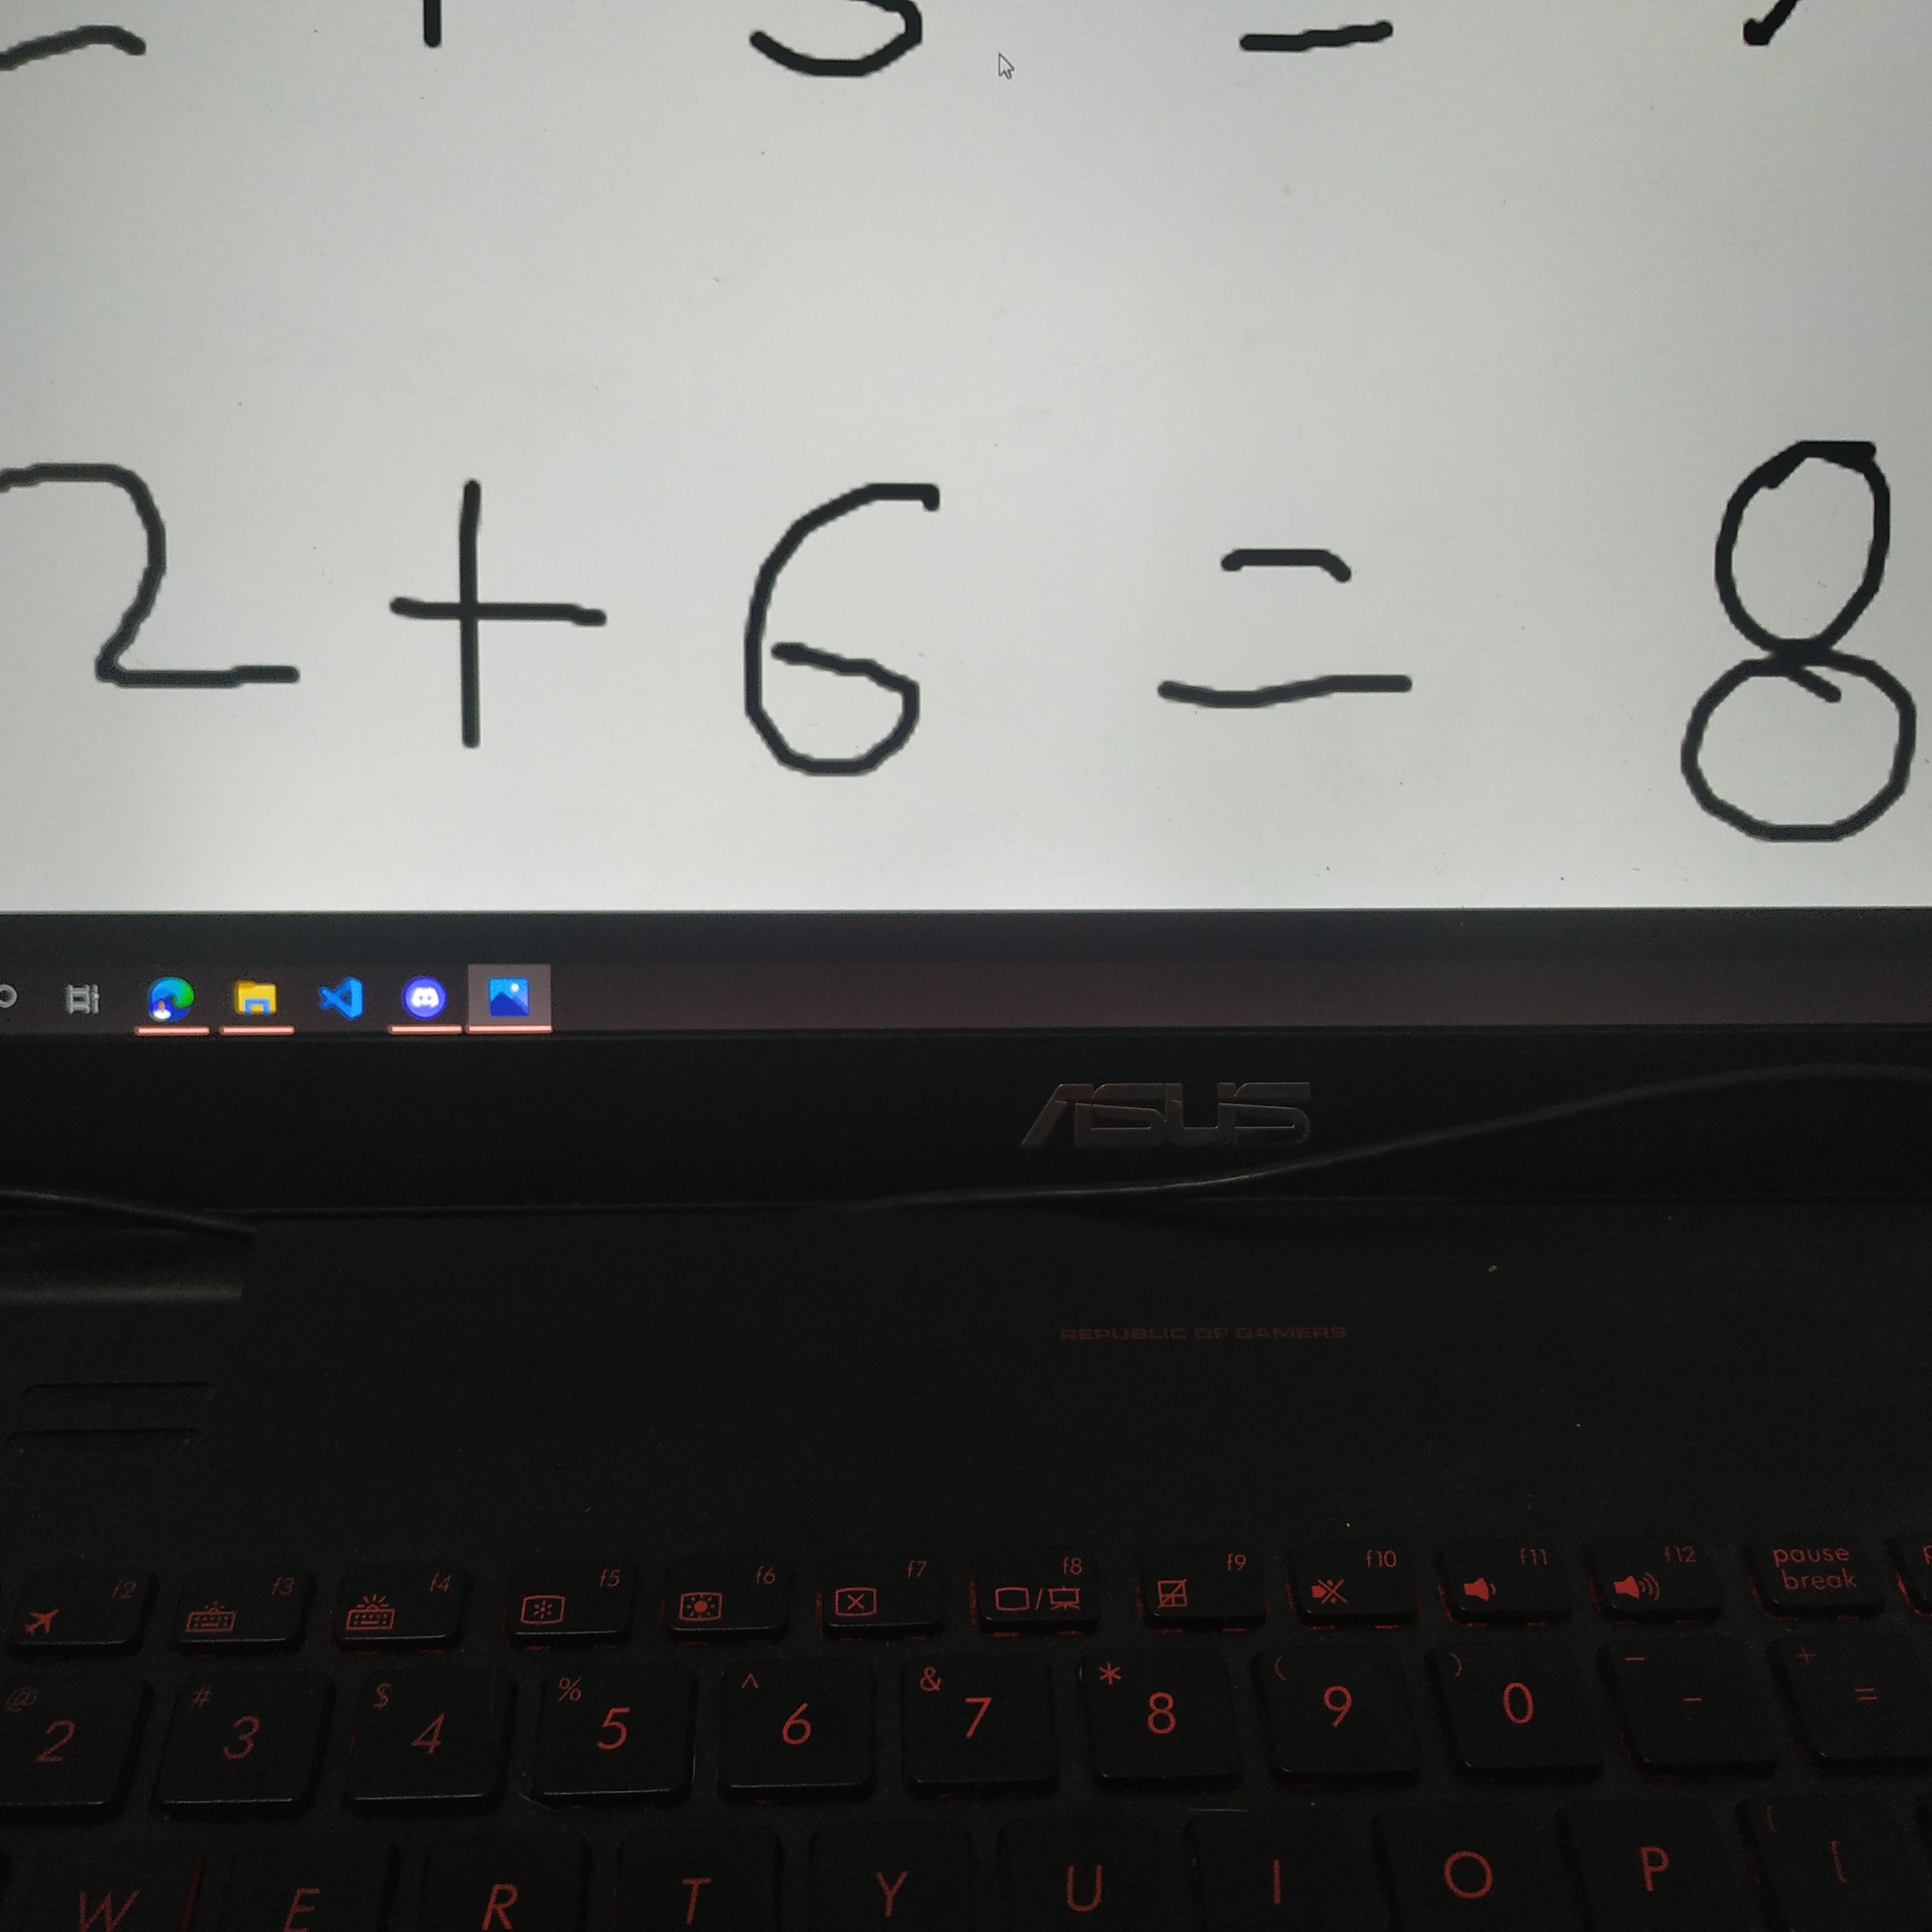 2 + 6 = 8
ASUS
REPUBLIC OF GAMERS
f2 f3 f4 f5 f6 f7 f8 f9 f10 f11 f12 pause break
@ 2 # 3 $ 4 % 5 ^ 6 & 7 * 8 ( 9 ) 0 _ - + =
W E R T Y U I O P { [